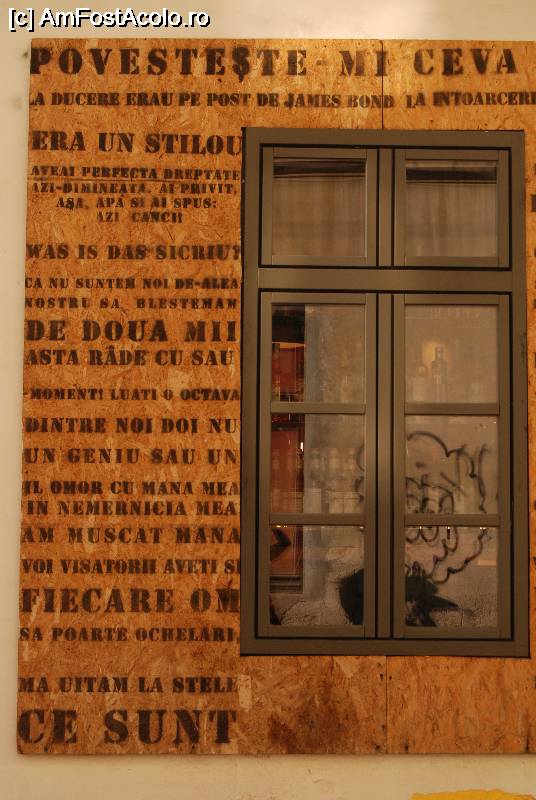 [c] AmFostAcolo.ro
POVESTEȘTE-MI CEVA
LA DUCERE ERAU PE POST DE JAMES BOND LA INTOARCERE
ERA UN STILOU
AVEAI PERFECTA DREPTATE
AZI-DIMINEATA, AI PRIVIT,
AȘA, APĂ SI AI SPUS:
AZI CANCH
WAS IS DAS SICRIU?
CA NU SUNTEM NOI DE-ALEA
NOSTRU SA BLESTEMAM
DE DOUA MII
ASTA RÂDE CU SAU
-MOMENT! LUATI O OCTAVA
DINTRE NOI DOI NU
UN GENIU SAU UN
IL OMOR CU MANA MEA
IN NEMERNICIA MEA
AM MUSCAT MANA
VOI VISATORII AVETI SI
FIECARE OM
SA POARTE OCHELARI,
MA UITAM LA STELE
CE SUNT